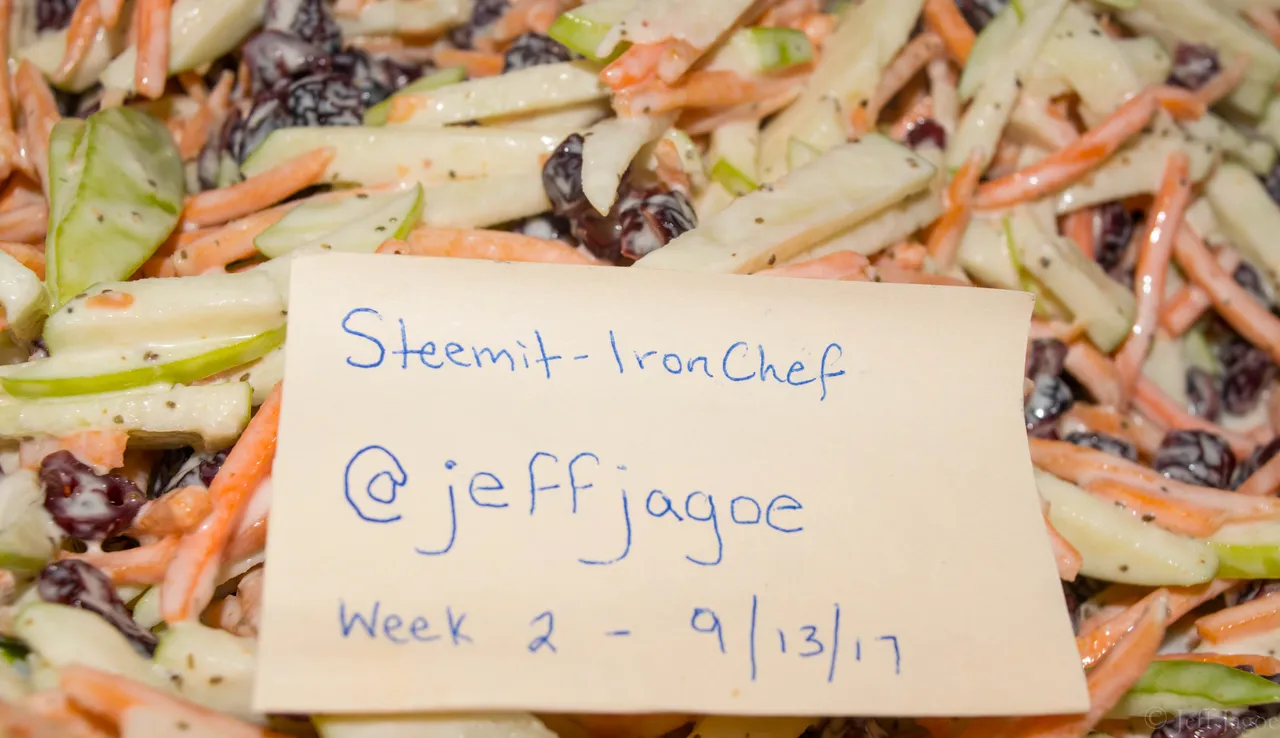 Steemit-IronChef
@jeffjagoe
Week 2 - 9/13/17
© Jeff Jagoe